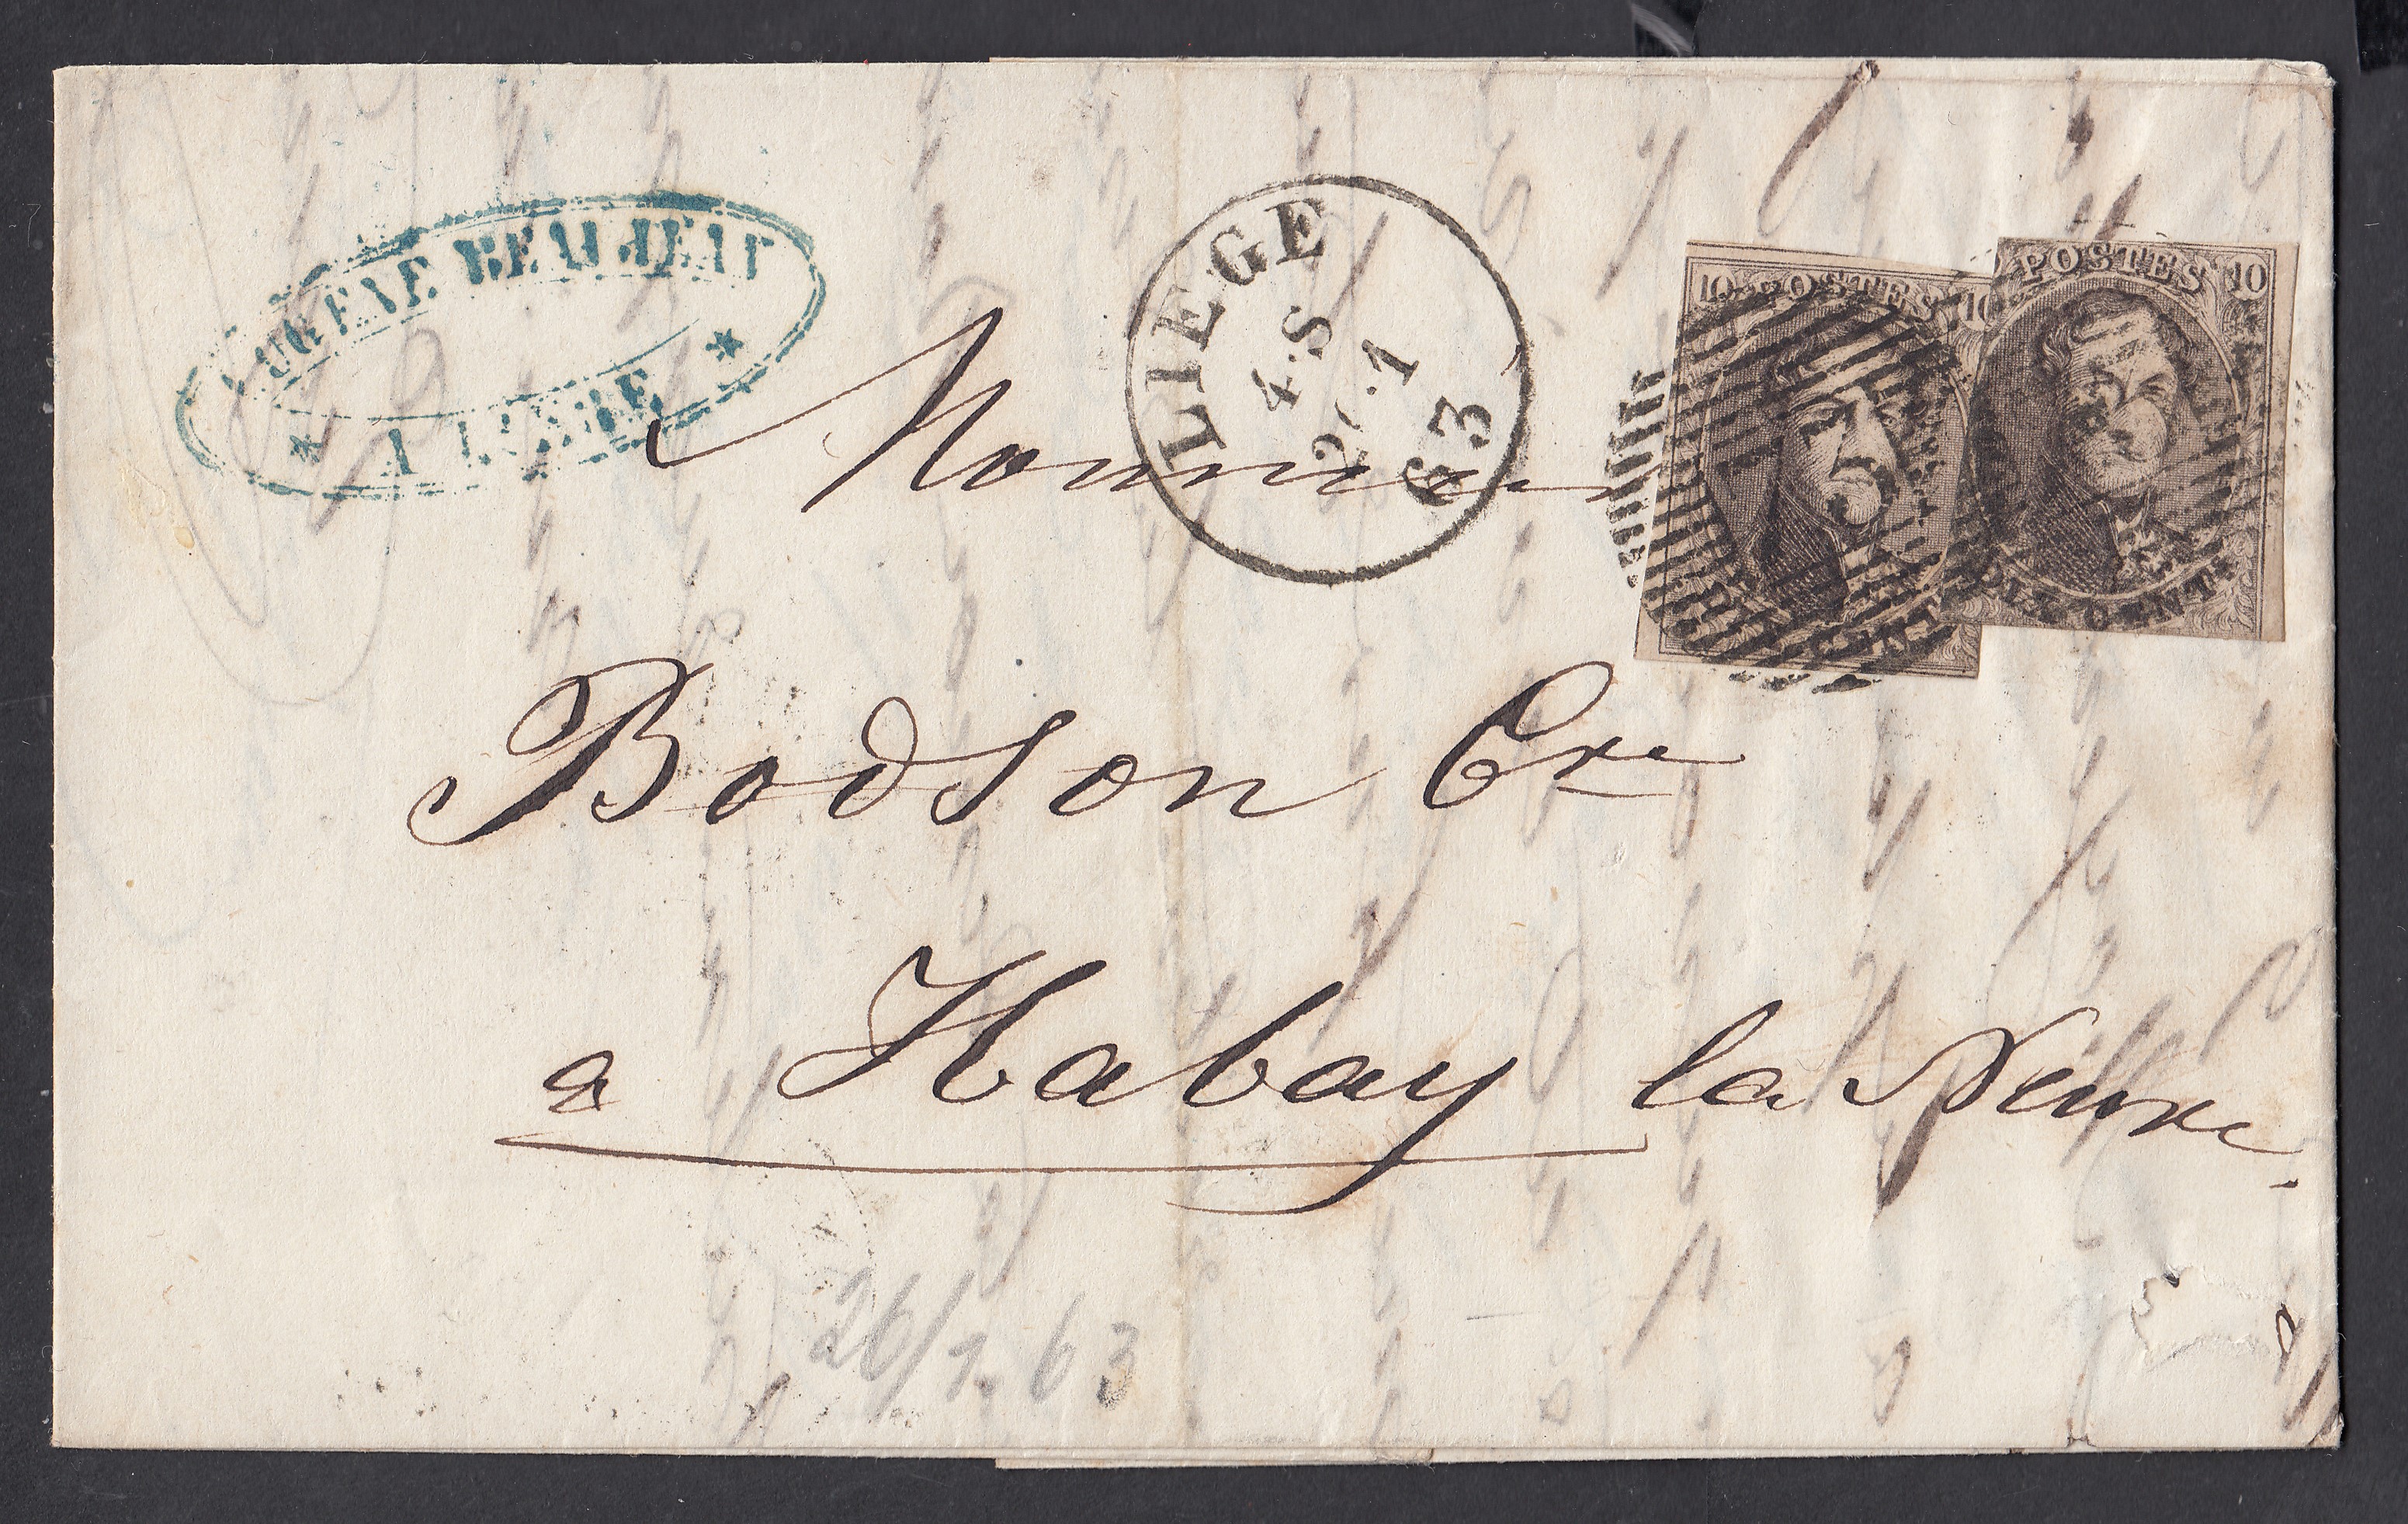 EUGENE BEAUJEAN
A LIEGE
LIEGE
4.S
1
63
10 POSTES 10
POSTES 10
DIX CENTS
DIX CENTS
Monsieur
Bodson Cre
a Habay la Neuve.
26/1. 63